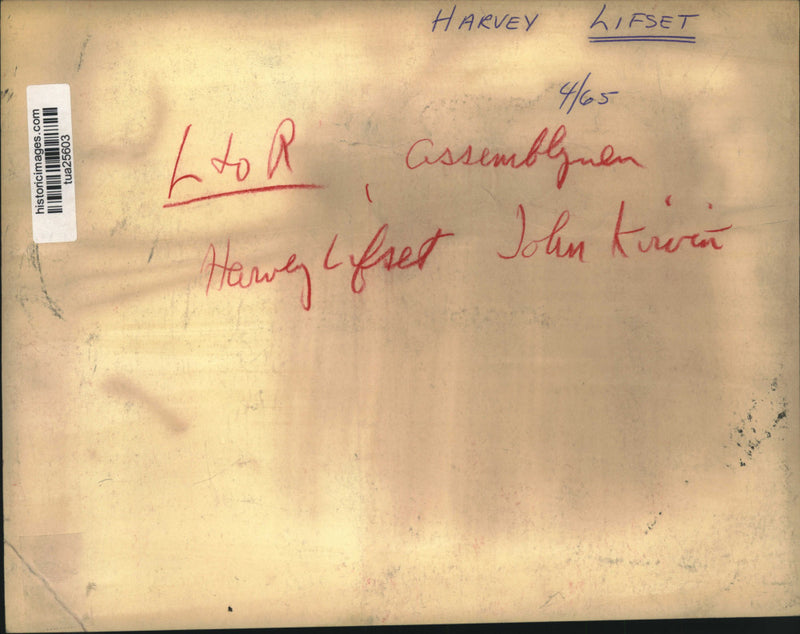 HARVEY LIFSET
4/65
L to R Assemblymen
Harvey Lifset John Kirvin
historicimages.com
tua25603